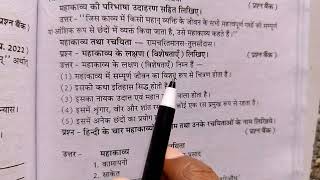 महाकाव्य की परिभाषा उदाहरण सहित लिखिए।
(प्रश्न बैंक)
उत्तर– "जिस काव्य में किसी महान् व्यक्ति के जीवन के सभी महत्वपूर्ण पक्षों को सम्पूर्ण
या आंशिक रूप से छंदों में व्यक्त किया जाता है, उसे महाकाव्य कहते हैं।"
महाकाव्य तथा रचयिता – रामचरितमानस-तुलसीदास।
महाकाव्य के लक्षण ( विशेषताएँ ) लिखिए।
(प्रश्न बैंक)
उत्तर– महाकाव्य के लक्षण ( विशेषताएँ ) निम्न हैं –
(1) महाकाव्य में सम्पूर्ण जीवन का विशद् रूप से चित्रण होता है।
(2) इसकी कथा इतिहास सिद्ध होती है।
(3) इसका नायक उदात्त एवं महान
वाला होता है।
(4) इसमें शृंगार, वीर और शांत
कोई एक रस प्रमुख रूप से रहता है।
(5) इसमें अनेक छंदों का प्रयोग
प्रश्न – हिन्दी के चार महाकाव्य
तथा उनके रचयिताओं के नाम लिखिए।
(प्रश्न बैंक)
उत्तर –
महाकाव्य
1. कामायनी
2. साकेत
2022)
अर्थात्